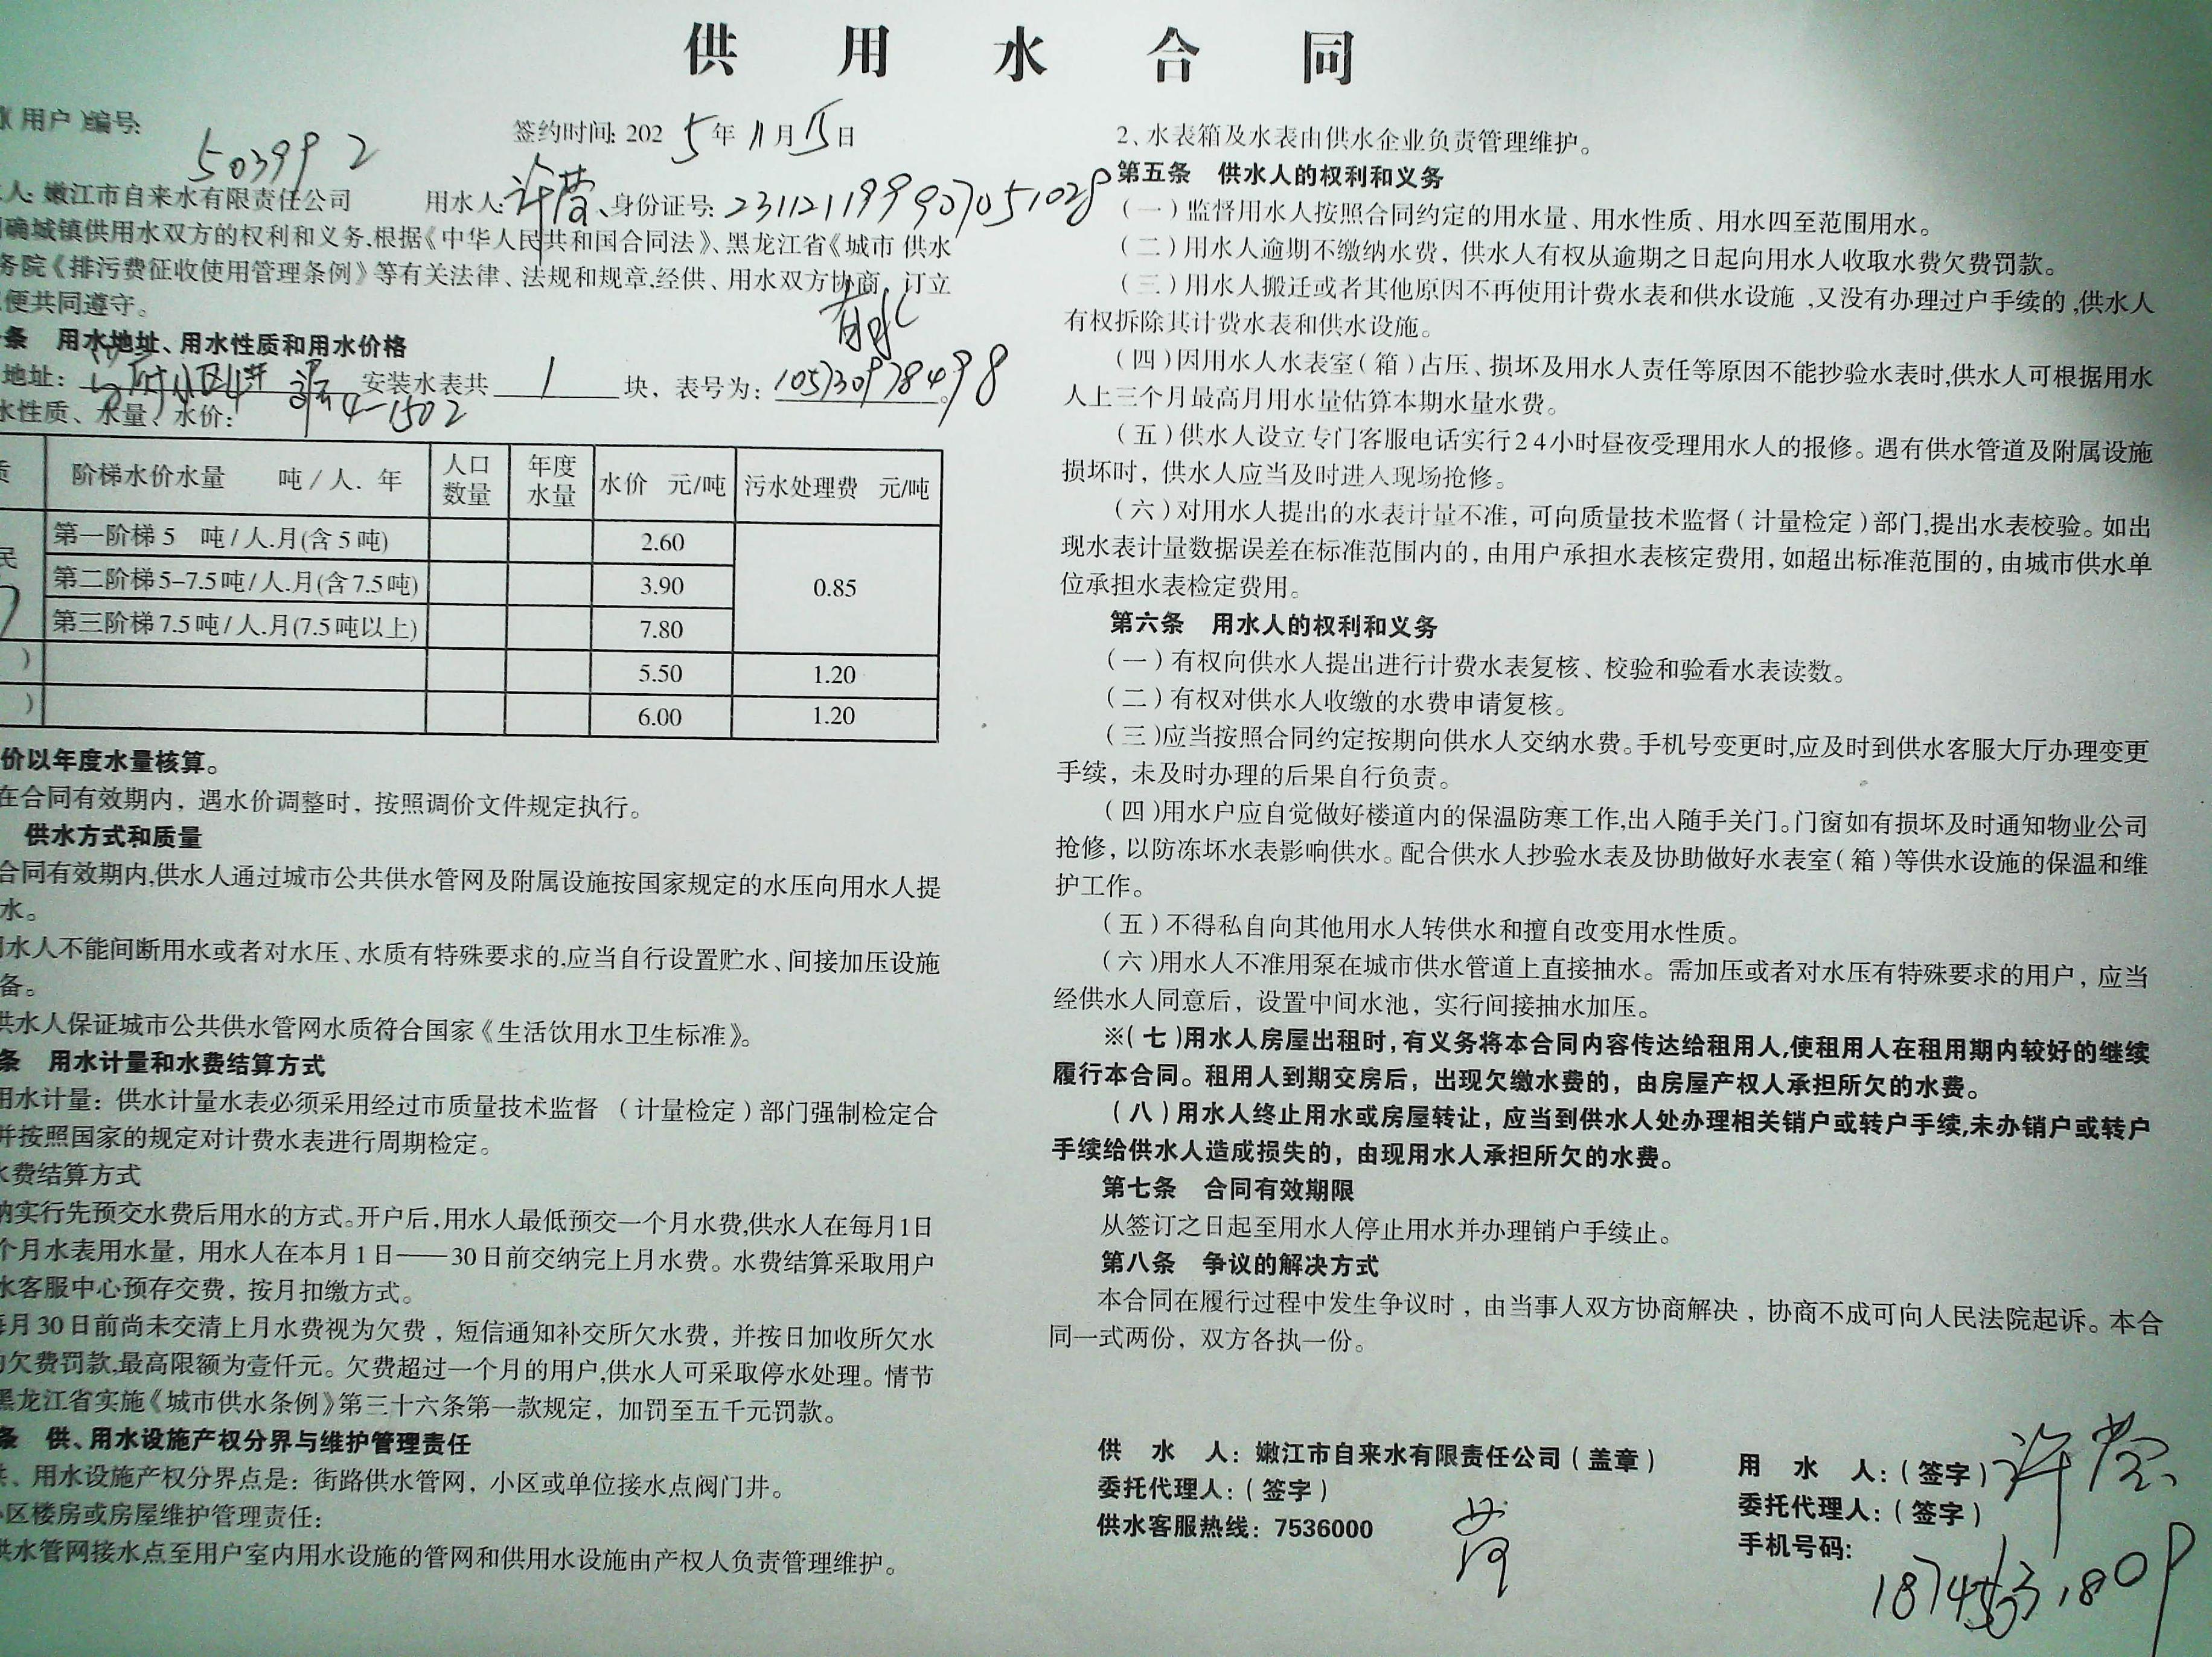 供用水合同
（用户）编号: 503992
签约时间: 2025年11月15日
人: 嫩江市自来水有限责任公司 用水人: 许莹 身份证号: 231121199907051028
确城镇供用水双方的权利和义务,根据《中华人民共和国合同法》、黑龙江省《城市 供水
务院《排污费征收使用管理条例》等有关法律、法规和规章,经供、用水双方协商，订立
便共同遵守。
条 用水地址、用水性质和用水价格
地址: 4-1502 安装水表共 1 块，表号为: 105730978498
水性质、水量、水价:
阶梯水价水量 吨/人. 年 人口数量 年度水量 水价 元/吨 污水处理费 元/吨
第一阶梯 5 吨/人.月(含5吨) 2.60
民 第二阶梯 5–7.5吨/人.月(含7.5吨) 3.90 0.85
第三阶梯 7.5吨/人.月(7.5吨以上) 7.80
) 5.50 1.20
) 6.00 1.20
价以年度水量核算。
在合同有效期内，遇水价调整时，按照调价文件规定执行。
供水方式和质量
合同有效期内,供水人通过城市公共供水管网及附属设施按国家规定的水压向用水人提
水。
用水人不能间断用水或者对水压、水质有特殊要求的,应当自行设置贮水、间接加压设施
备。
供水人保证城市公共供水管网水质符合国家《生活饮用水卫生标准》。
条 用水计量和水费结算方式
用水计量：供水计量水表必须采用经过市质量技术监督 （计量检定）部门强制检定合
并按照国家的规定对计费水表进行周期检定。
水费结算方式
纳实行先预交水费后用水的方式。开户后,用水人最低预交一个月水费,供水人在每月1日
个月水表用水量，用水人在本月1日——30日前交纳完上月水费。水费结算采取用户
水客服中心预存交费，按月扣缴方式。
每月30日前尚未交清上月水费视为欠费，短信通知补交所欠水费，并按日加收所欠水
的欠费罚款,最高限额为壹仟元。欠费超过一个月的用户,供水人可采取停水处理。情节
黑龙江省实施《城市供水条例》第三十六条第一款规定，加罚至五千元罚款。
条 供、用水设施产权分界与维护管理责任
供、用水设施产权分界点是：街路供水管网，小区或单位接水点阀门井。
小区楼房或房屋维护管理责任：
供水管网接水点至用户室内用水设施的管网和供用水设施由产权人负责管理维护。
2、水表箱及水表由供水企业负责管理维护。
第五条 供水人的权利和义务
（一）监督用水人按照合同约定的用水量、用水性质、用水四至范围用水。
（二）用水人逾期不缴纳水费，供水人有权从逾期之日起向用水人收取水费欠费罚款。
（三）用水人搬迁或者其他原因不再使用计费水表和供水设施,又没有办理过户手续的,供水人
有权拆除其计费水表和供水设施。
（四）因用水人水表室（箱）占压、损坏及用水人责任等原因不能抄验水表时,供水人可根据用水
人上三个月最高月用水量估算本期水量水费。
（五）供水人设立专门客服电话实行24小时昼夜受理用水人的报修。遇有供水管道及附属设施
损坏时，供水人应当及时进入现场抢修。
（六）对用水人提出的水表计量不准，可向质量技术监督（计量检定）部门,提出水表校验。如出
现水表计量数据误差在标准范围内的，由用户承担水表核定费用，如超出标准范围的，由城市供水单
位承担水表检定费用。
第六条 用水人的权利和义务
（一）有权向供水人提出进行计费水表复核、校验和验看水表读数。
（二）有权对供水人收缴的水费申请复核。
（三）应当按照合同约定按期向供水人交纳水费。手机号变更时,应及时到供水客服大厅办理变更
手续，未及时办理的后果自行负责。
（四）用水户应自觉做好楼道内的保温防寒工作,出入随手关门。门窗如有损坏及时通知物业公司
抢修，以防冻坏水表影响供水。配合供水人抄验水表及协助做好水表室（箱）等供水设施的保温和维
护工作。
（五）不得私自向其他用水人转供水和擅自改变用水性质。
（六）用水人不准用泵在城市供水管道上直接抽水。需加压或者对水压有特殊要求的用户，应当
经供水人同意后，设置中间水池，实行间接抽水加压。
※（七）用水人房屋出租时,有义务将本合同内容传达给租用人,使租用人在租用期内较好的继续
履行本合同。租用人到期交房后，出现欠缴水费的，由房屋产权人承担所欠的水费。
（八）用水人终止用水或房屋转让，应当到供水人处办理相关销户或转户手续,未办销户或转户
手续给供水人造成损失的，由现用水人承担所欠的水费。
第七条 合同有效期限
从签订之日起至用水人停止用水并办理销户手续止。
第八条 争议的解决方式
本合同在履行过程中发生争议时，由当事人双方协商解决，协商不成可向人民法院起诉。本合
同一式两份，双方各执一份。
供 水 人：嫩江市自来水有限责任公司（盖章）
委托代理人：（签字）
供水客服热线：7536000
用 水 人：（签字）许莹
委托代理人：（签字）
手机号码：